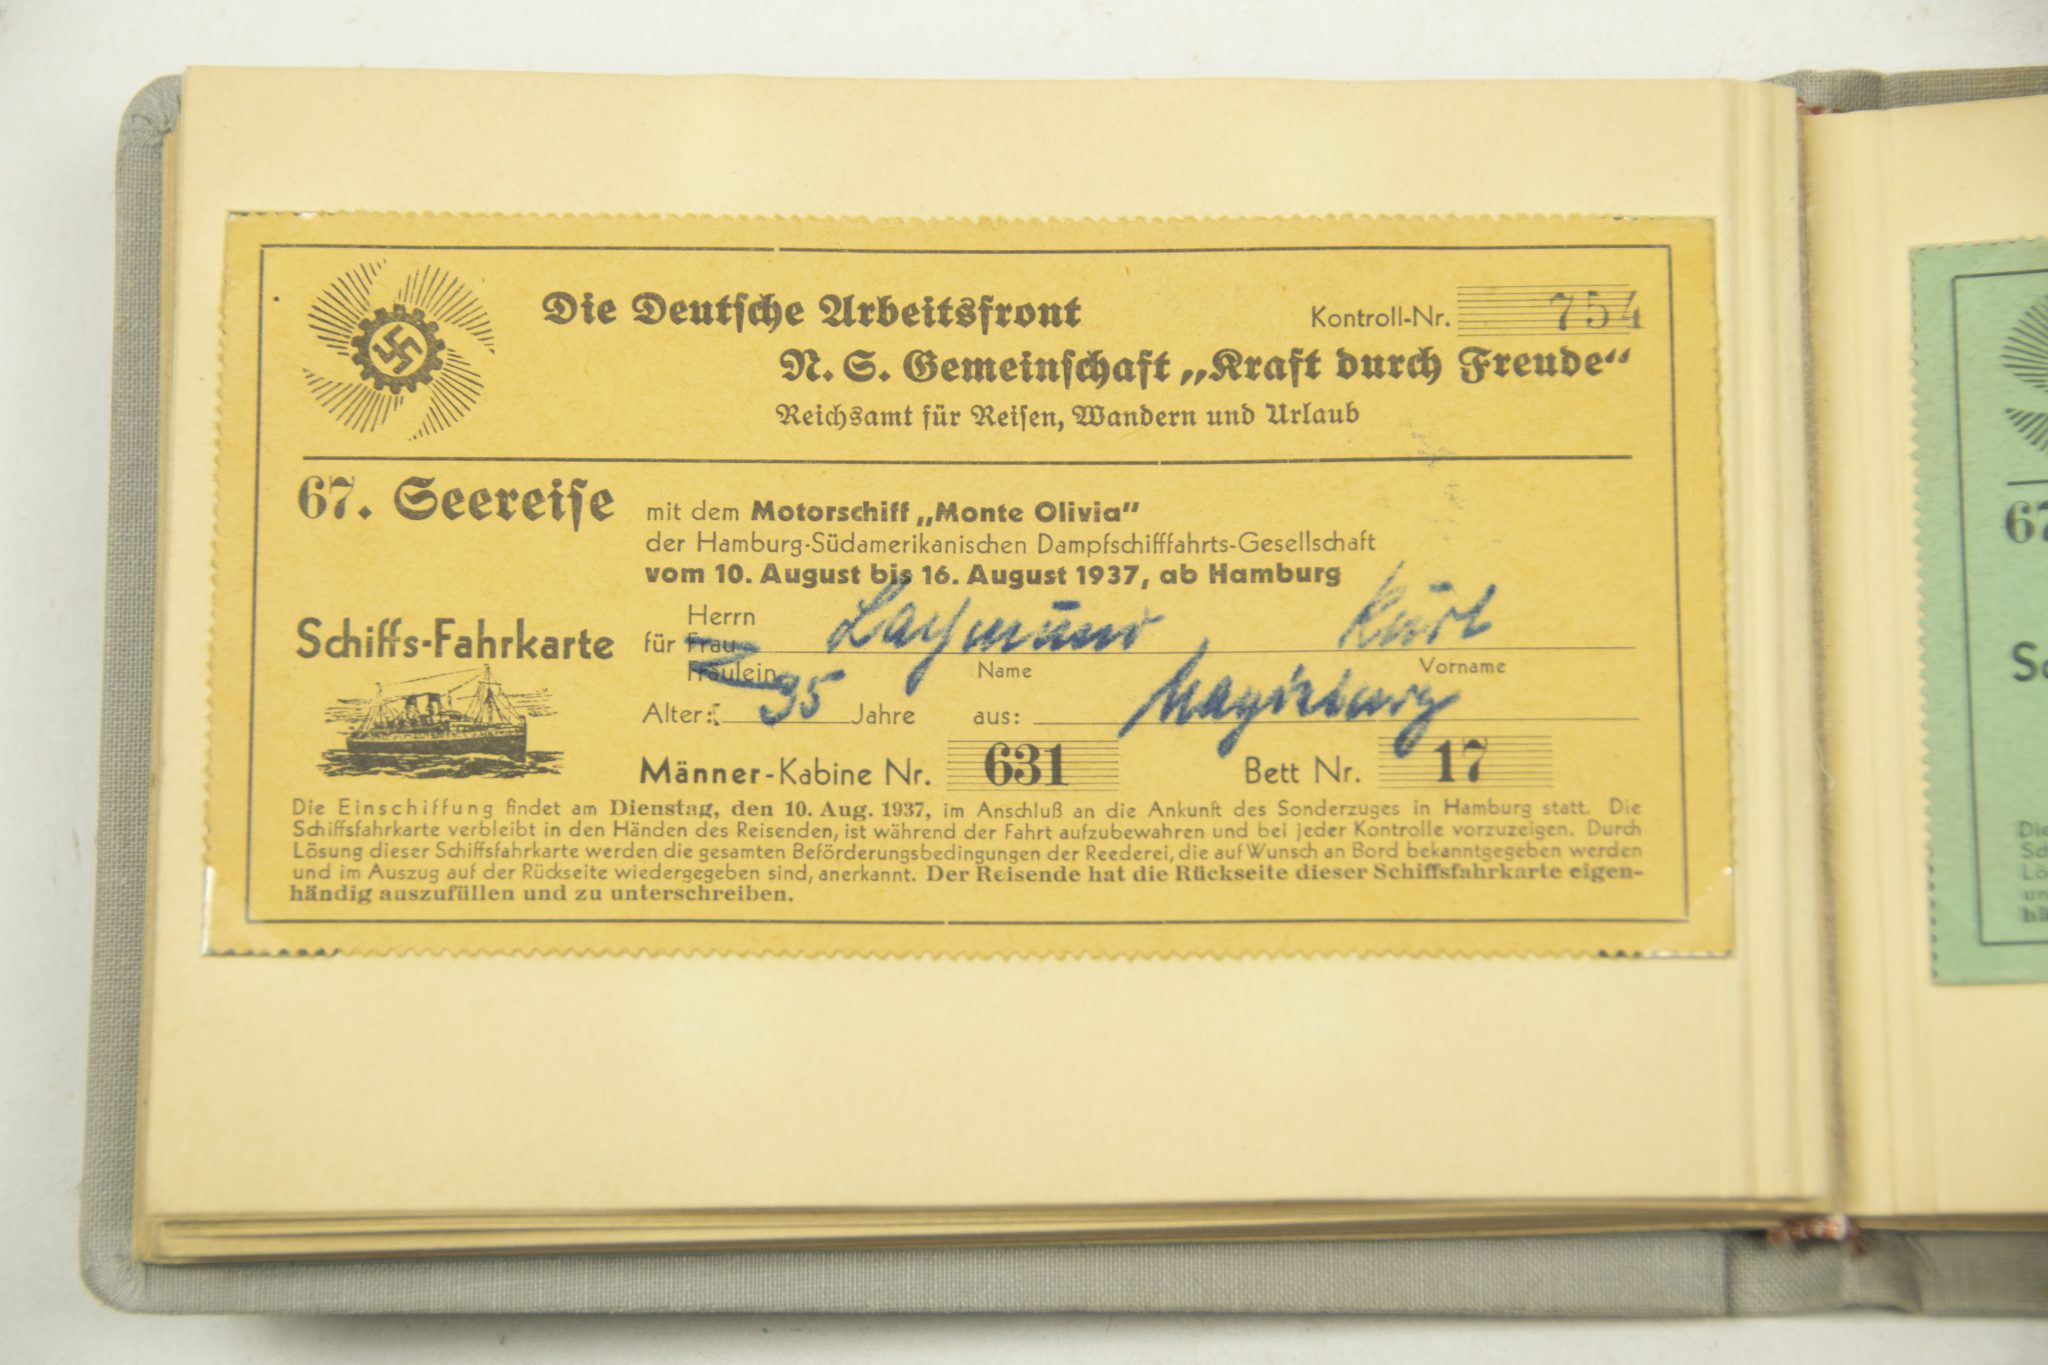 Die Deutsche Arbeitsfront
Kontroll-Nr. 754
N. S. Gemeinschaft „Kraft durch Freude“
Reichsamt für Reisen, Wandern und Urlaub
67. Seereise
mit dem Motorschiff „Monte Olivia“
der Hamburg-Südamerikanischen Dampfschifffahrts-Gesellschaft
vom 10. August bis 16. August 1937, ab Hamburg
Schiffs-Fahrkarte
Herrn
für Frau Kurt
Fräulein Name Vorname
Alter: 35 Jahre aus: Magdeburg
Männer-Kabine Nr. 631 Bett Nr. 17
Die Einschiffung findet am Dienstag, den 10. Aug. 1937, im Anschluß an die Ankunft des Sonderzuges in Hamburg statt. Die
Schiffsfahrkarte verbleibt in den Händen des Reisenden, ist während der Fahrt aufzubewahren und bei jeder Kontrolle vorzuzeigen. Durch
Lösung dieser Schiffsfahrkarte werden die gesamten Beförderungsbedingungen der Reederei, die auf Wunsch an Bord bekanntgegeben werden
und im Auszug auf der Rückseite wiedergegeben sind, anerkannt. Der Reisende hat die Rückseite dieser Schiffsfahrkarte eigen-
händig auszufüllen und zu unterschreiben.
67
Sc
Die
Sc
Lö
un
hä